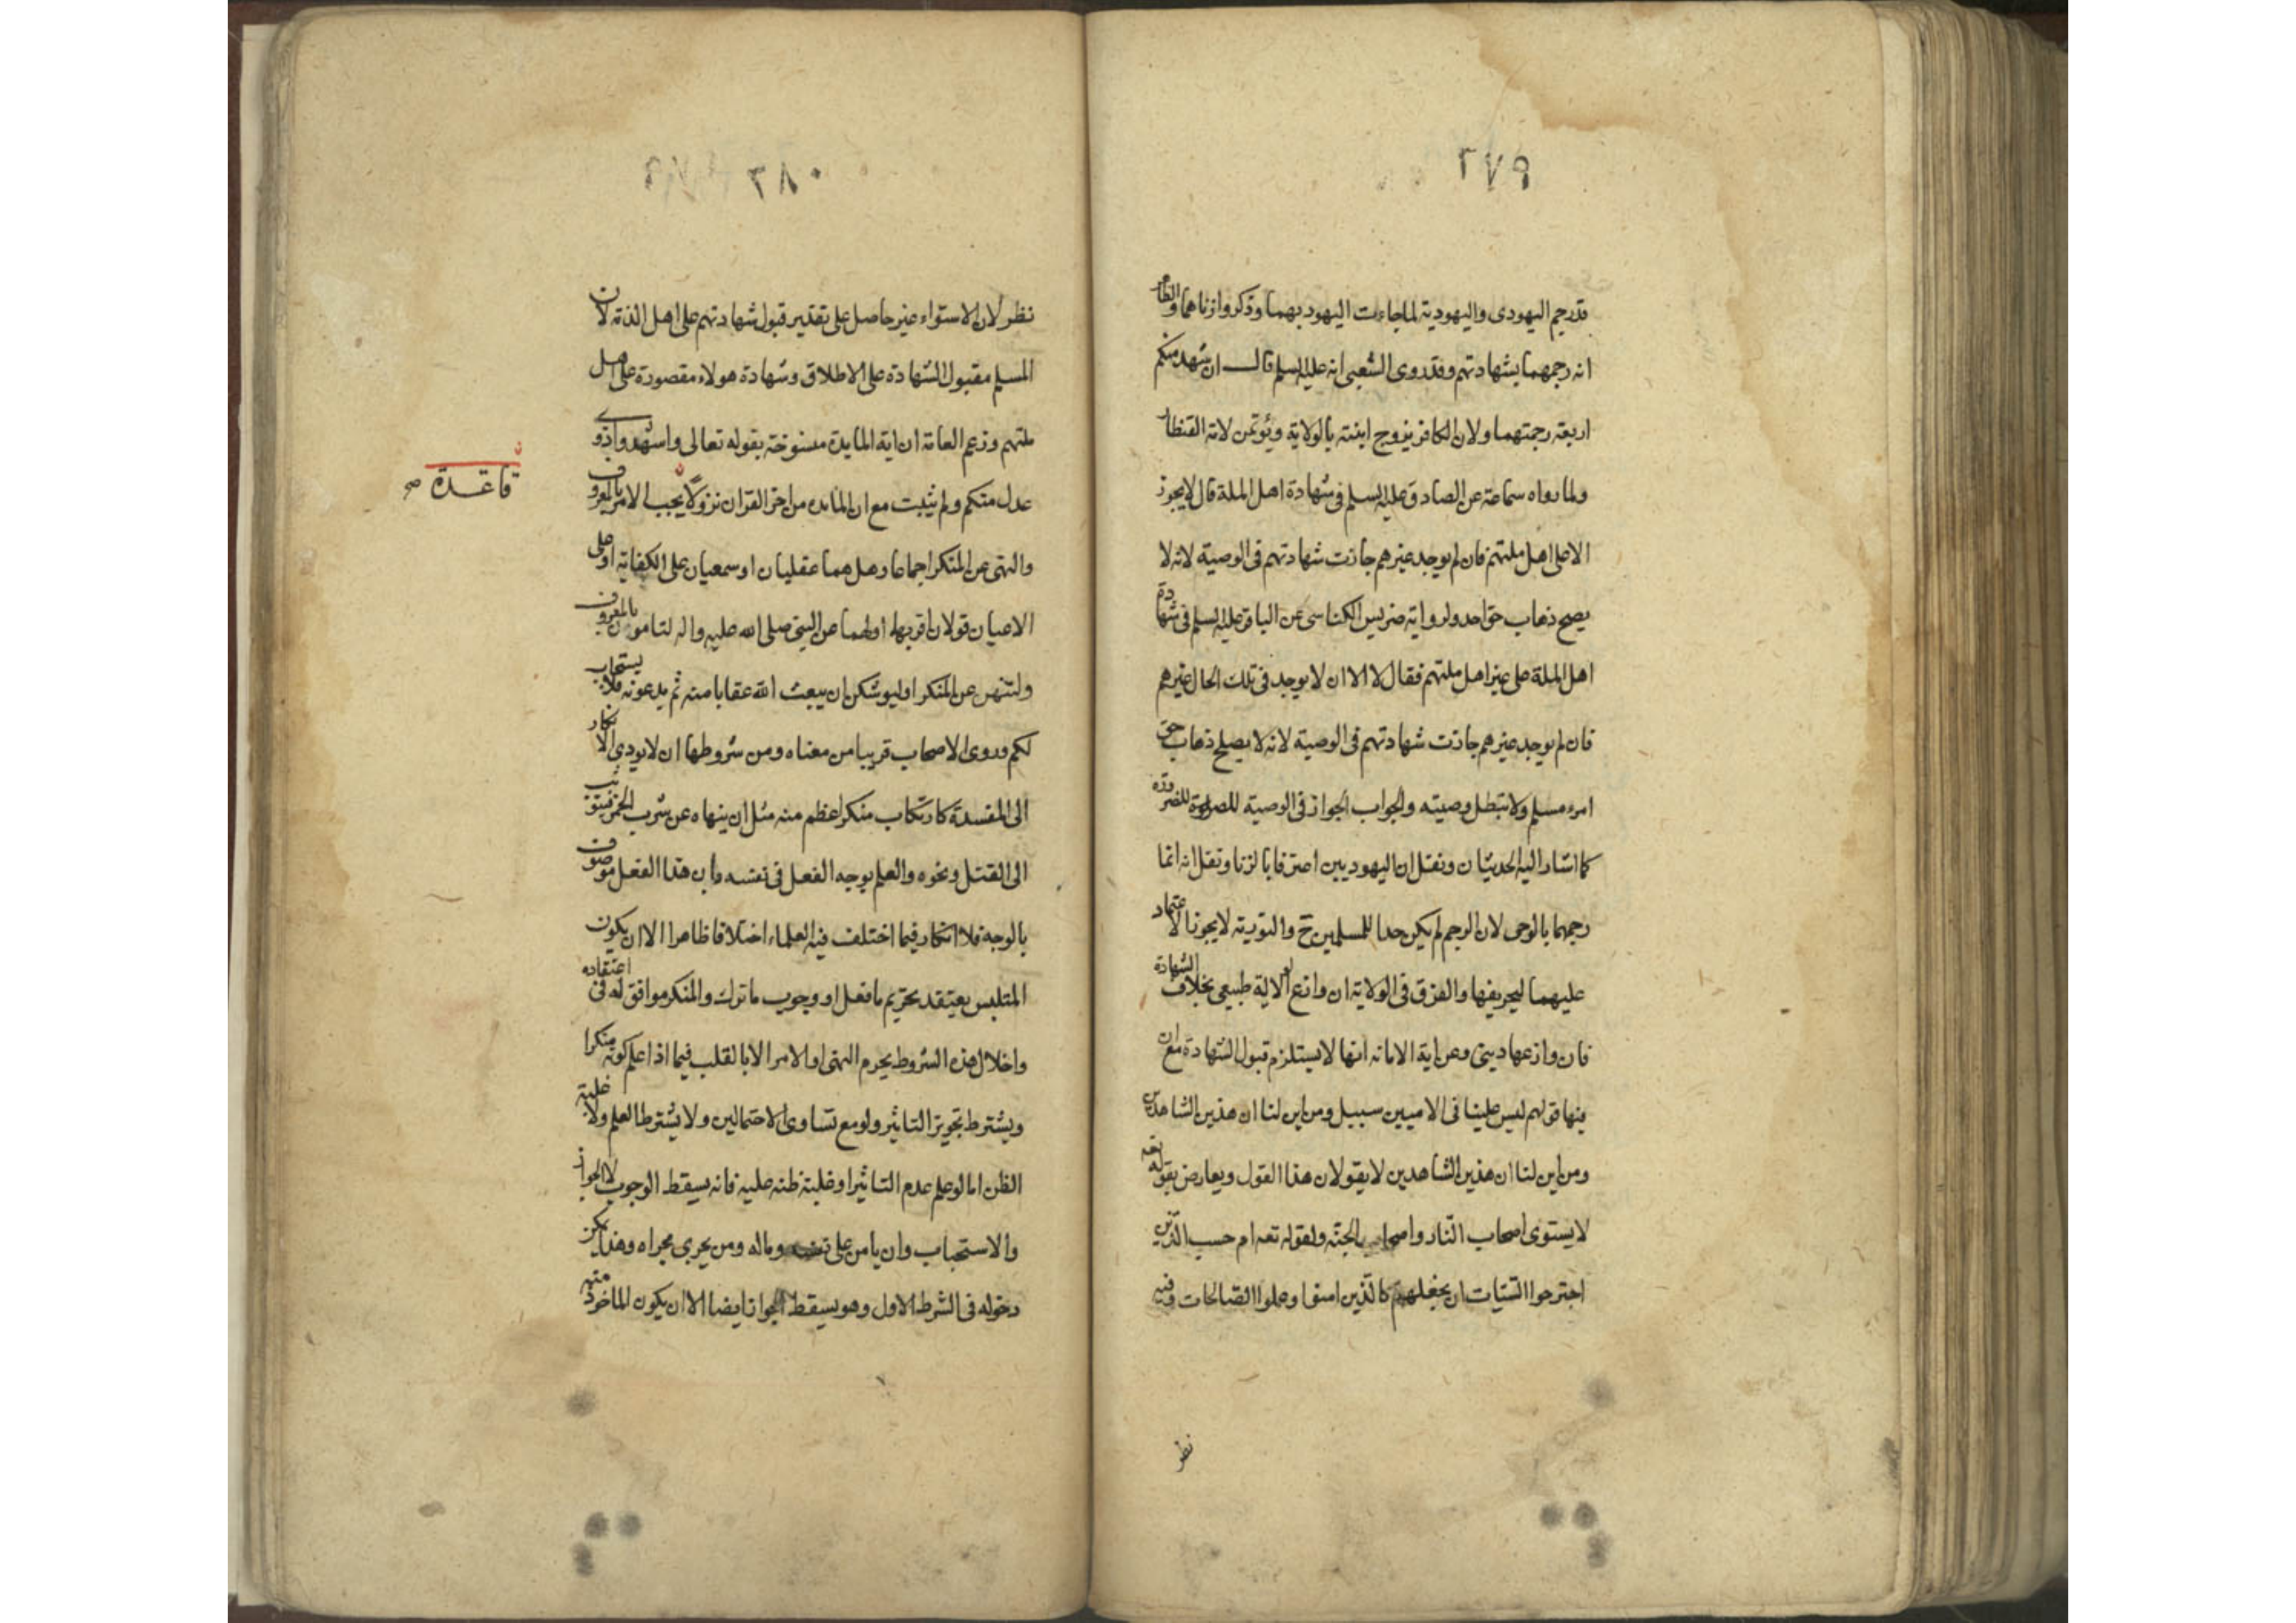 ٢٧٩
قد رجم اليهودى واليهودية لما جاءت اليهود بهما وذكروا زناهما والظاهر
انه رجمهما بشهادتهم وقد روى الشعبى انه عليه السلم قال ان شهد منكم
اربعة رجمتهما ولان الكافر يزوج ابنته بالولاية ويؤتمن لاية القنطار
ولما رواه سماعة عن الصادق عليه السلم فى شهادة اهل الملة قال لا يجوز
الا على اهل ملتهم فان لم يوجد غيرهم جازت شهادتهم فى الوصية لانه لا
يصح ذهاب حق احد ولرواية ضريس الكناسى عن الباقر عليه السلم فى شهادة
اهل الملة على غير اهل ملتهم فقال لا الا ان لا يوجد فى تلك الحال غيرهم
فان لم يوجد غيرهم جازت شهادتهم فى الوصية لانه لا يصلح ذهاب حق
امرء مسلم ولا تبطل وصيته والجواب الجواز فى الوصية للضرورة
كما اشار اليه الحديثان ونقل ان اليهوديين اعترفا بالزنا ونقل انه انما
رجمهما بالوحى لان الرجم لم يكن حدا للمسلمين ح والتورية لا يجوز الاعتماد
عليهما لتحريفها والفرق فى الولاية ان وازع الولاية طبيعى بخلاف الشهادة
فان وازعها دينى وعن اية الامانه انها لا يستلزم قبول الشهادة مع ان
فيها قولهم ليس علينا فى الاميين سبيل ومن اين لنا ان هذين الشاهدين
ومن اين لنا ان هذين الشاهدين لا يقولان هذا القول ويعارض بقوله تعه
لا يستوى اصحاب النار واصحاب الجنه ولقوله تعه ام حسب الذين
اجترحوا السيئات ان نجعلهم كالذين امنوا وعملوا الصالحات وفيه
نظر
٢٨٠
نظر لان الاستواء غير حاصل على تقدير قبول شهادتهم على اهل الذمة لان
المسلم مقبول الشهادة على الاطلاق وشهادة هولاء مقصورة على اهل
ملتهم وزعم العامة ان اية المايدة منسوخة بقوله تعالى واشهدوا ذوى
عدل منكم ولم يثبت مع ان المائده من اخر القران نزولا يجب الامر بالمعروف
والنهى عن المنكر اجماعا وهل هما عقليان او سمعيان على الكفاية او على
الاعيان قولان اقربهما اولهما عن النبى صلى الله عليه واله لتامرن بالمعروف
ولتنهن عن المنكر او ليوشكن ان يبعث الله عقابا منه ثم يدعونه فلا يستجاب
لكم وروى الاصحاب قريبا من معناه ومن شروطها ان لا يودى الانكار
الى المفسدة كارتكاب منكر اعظم منه مثل ان ينهاه عن شرب الخمر فيتوثب
الى القتل ونحوه والعلم بوجه الفعل فى نفسه وان هذا الفعل موصوف
بالوجه فلا انكار فيما اختلف فيه العلماء اختلافا ظاهرا الا ان يكون
المتلبس يعتقد تحريم ما فعل او وجوب ما ترك والمنكر موافق له فى اعتقاده
واخلال هذه الشروط يحرم النهى او الامر الا بالقلب فيما اذا علم كونه منكرا
ويشترط تجويز التاثير ولو مع تساوى الاحتمالين ولا يشترط العلم ولا غلبة
الظن اما لو علم عدم التاثير او غلبة ظنه عليه فانه يسقط الوجوب لا الجواز
والاستحباب وان يامن على نفسه وماله ومن يجرى مجراه وهذا يمكن
دخوله فى الشرط الاول وهو يسقط الجواز ايضا الا ان يكون الماخوذ منه
قاعدة صح